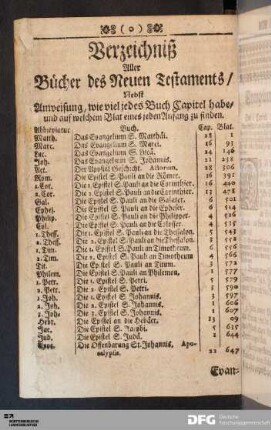 ( o )
Verzeichniß
Aller
Bücher des Neuen Testaments/
Nebst
Anweisung, wie viel jedes Buch Capitel habe/
und auf welchem Blat eines jeden Anfang zu finden.
Abbreviatur. Buch. Cap. Blat.
Matth. Das Evangelium S. Matthäi. 28 1
Marc. Das Evangelium S. Marci. 16 93
Luc. Das Evangelium S. Lucä. 24
Joh. Das Evangelium S. Johannis. 21 238
Act. Der Apostel Geschicht. 28 306
Rom. Die Epistel S. Pauli an die Römer. 16 392
1. Cor. Die 1. Epistel S. Pauli an die Corinthier. 16 440
2. Cor. Die 2. Epistel S. Pauli an die Corinthier. 13 478
Gal. Die Epistel S. Pauli an die Galater. 6 501
Ephes. Die Epistel S. Pauli an die Epheser. 6 514
Philip. Die Epistel S. Pauli an die Philipper. 4
Col. Die Epistel S. Pauli an die Colosser. 4
1. Thess. Die 1. Epistel S. Pauli an die Thessalon. 5
2. Thess. Die 2. Epistel S. Pauli an die Thessalon. 3
1. Tim. Die 1. Epistel S. Pauli an Timotheum. 6
2. Tim. Die 2. Epistel S. Pauli an Timotheum 4
Tit. Die Epistel S. Pauli an Titum. 3
Philem. Die Epistel S. Pauli an Philemon. 1
1. Petr. Die 1. Epistel S. Petri. 5
2. Petr. Die 2. Epistel S. Petri. 3
1. Joh. Die 1. Epistel S. Johannis. 5
2. Joh. Die 2. Epistel S. Johannis. 1
3. Joh. Die 3. Epistel S. Johannis. 1
Hebr. Die Epistel an die Hebräer. 13
Jac. Die Epistel S. Jacobi. 5 615
Jud. Die Epistel S. Judä. 1 644
Apoc. Die Offenbarung St. Johannis, Apo-
calypsis. 22 647
Evan-
DFG Deutsche
Forschungsgemeinschaft